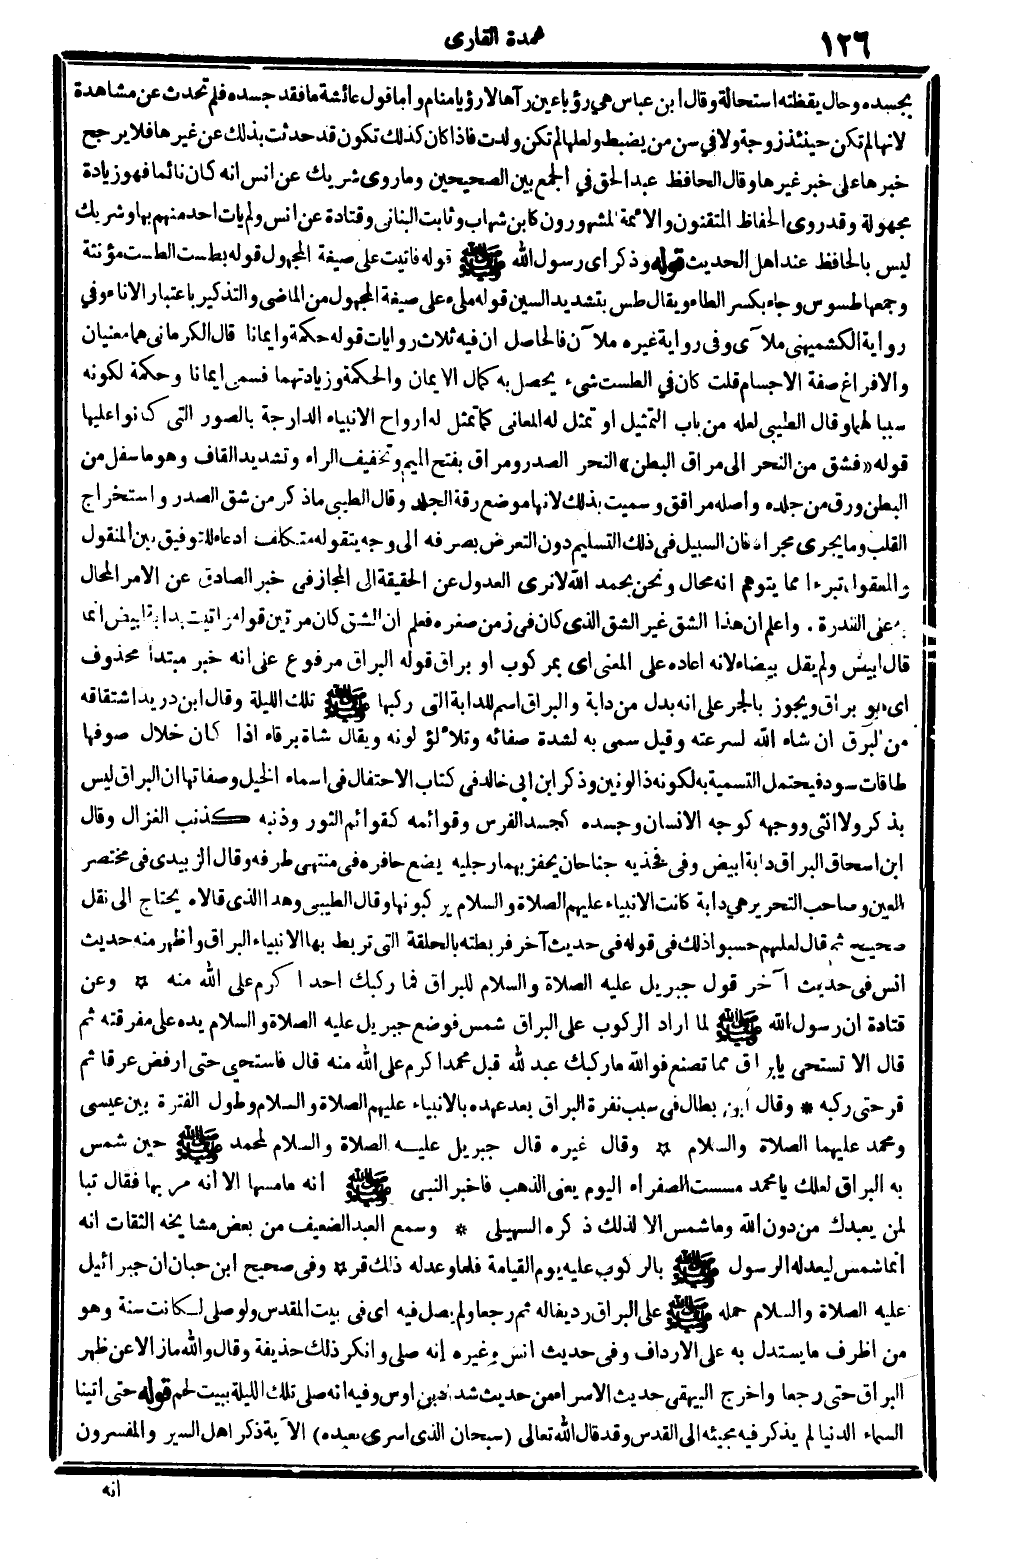 ١٢٦
عمدة القارى
بجسده وحال يقظته استحالة وقال ابن عباس هي رؤيا عين رآها لا رؤيا منام وأما قول عائشة ما فقد جسده فلم تحدث عن مشاهدة
لانها لم تكن حينئذ زوجة ولا في سن من يضبط ولعلها لم تكن ولدت فاذا كان كذلك تكون قد حدثت بذلك عن غيرها فلا يرجح
خبرها على خبر غيرها وقال الحافظ عبد الحق في الجمع بين الصحيحين وما روى شريك عن انس انه كان نائما فهو زيادة
مجهولة وقد روى الحفاظ المتقنون والائمة المشهورون كابن شهاب وثابت البنانى وقتادة عن انس ولم يات احد منهم بها وشريك
ليس بالحافظ عند اهل الحديث قوله وذكر اى رسول الله ﷺ قوله فاتيت على صيغة المجهول قوله بطست الطست مؤنثة
وجمعها طسوس وجاء بكسر الطاء ويقال طس بتشديد السين قوله ملىء على صيغة المجهول من الماضى والتذكير باعتبار الاناء وفي
رواية الكشميهنى ملآى وفى رواية غيره ملآن فالحاصل ان فيه ثلاث روايات قوله حكمة وايمانا قال الكرمانى هما معنيان
والافراغ صفة الاجسام قلت كان في الطست شىء يحصل به كمال الايمان والحكمة وزيادتهما فسمى ايمانا وحكمة لكونه
سببا لهما وقال الطيبى لعله من باب التمثيل او تمثل له المعانى كما تمثل له ارواح الانبياء الدارجة بالصور التى كانوا عليها
قوله «فشق من النحر الى مراق البطن» النحر الصدر ومراق بفتح الميم وتخفيف الراء وتشديد القاف وهو ما سفل من
البطن ورق من جلده وأصله مراقق وسميت بذلك لانها موضع رقة الجلد وقال الطيبى ما ذكر من شق الصدر واستخراج
القلب وما يجرى مجراه فان السبيل فى ذلك التسليم دون التعرض بصرفه الى وجه يتقوله متكلف ادعاء للتوفيق بين المنقول
والمعقول تبرءا مما يتوهم انه محال ونحن بحمد الله لانرى العدول عن الحقيقة الى المجاز فى خبر الصادق عن الامر المحال
به على القدرة. واعلم ان هذا الشق غير الشق الذى كان فى زمن صغره فعلم ان الشق كان مرتين قوله واتيت بدابة ابيض انما
قال ابيض ولم يقل بيضاء لانه اعاده على المعنى اى بمركوب او براق قوله البراق مرفوع على انه خبر مبتدأ محذوف
اى هو براق ويجوز بالجر على انه بدل من دابة والبراق اسم للدابة التى ركبها ﷺ تلك الليلة وقال ابن دريد اشتقاقه
من البرق ان شاء الله لسرعته وقيل سمى به لشدة صفائه وتلألؤ لونه ويقال شاة برقاء اذا كان خلال صوفها
طاقات سود فيحتمل التسمية به لكونه ذا لونين وذكر ابن ابي خالد في كتاب الاحتفال فى اسماء الخيل وصفاتها ان البراق ليس
بذكر ولا انثى ووجهه كوجه الانسان وجسده كجسد الفرس وقوائمه كقوائم الثور وذنبه كذنب الغزال وقال
ابن اسحاق البراق دابة ابيض وفى فخذيه جناحان يحفز بهما رجليه يضع حافره فى منتهى طرفه وقال الزبيدى فى مختصر
العين وصاحب التحرير هي دابة كانت الانبياء عليهم الصلاة والسلام يركبونها وقال الطيبى وهذا الذى قالاه يحتاج الى نقل
صحيح ثم قال لعلهم حسبوا ذلك فى قوله فى حديث آخر فربطته بالحلقة التى تربط بها الانبياء البراق واظهر منه حديث
انس فى حديث آخر قول جبريل عليه الصلاة والسلام للبراق فما ركبك احد اكرم على الله منه ✡ وعن
قتادة ان رسول الله ﷺ لما اراد الركوب على البراق شمس فوضع جبريل عليه الصلاة والسلام يده على مفرقته ثم
قال الا تستحى يابراق مما تصنع فو الله ما ركبك عبد لله قبل محمد اكرم على الله منه قال فاستحيى حتى ارفض عرقا ثم
قر حتى ركبه * وقال ابن بطال فى سبب نفرة البراق بعد عهده بالانبياء عليهم الصلاة والسلام وطول الفترة بين عيسى
ومحمد عليهما الصلاة والسلام ✡ وقال غيره قال جبريل عليه الصلاة والسلام لمحمد ﷺ حين شمس
به البراق لعلك يا محمد مسست الصفراء اليوم يعنى الذهب فاخبر النبى ﷺ انه مامسها الا انه مر بها فقال تبا
لمن يعبدك من دون الله وما شمس الا لذلك ذكره السهيلى * وسمع العبد الضعيف من بعض مشايخه الثقات انه
انما شمس ليعد له الرسول ﷺ بالركوب عليه يوم القيامة فلما وعد له ذلك قر ✡ وفى صحيح ابن حبان ان جبرائيل
عليه الصلاة والسلام حمله ﷺ على البراق رديفا له ثم رجعا ولم يصل فيه اى فى بيت المقدس ولو صلى لكانت سنة وهو
من اظرف ما يستدل به على الارداف وفى حديث انس وغيره انه صلى وانكر ذلك حذيفة وقال والله ما زالا عن ظهر
البراق حتى رجعا واخرج البيهقى حديث الاسراء من حديث شداد بن اوس وفيه انه صلى تلك الليلة ببيت لحم قوله حتى اتينا
السماء الدنيا لم يذكر فيه مجيئه الى القدس وقد قال الله تعالى (سبحان الذى اسرى بعبده) الآية ذكر اهل السير والمفسرون
انه